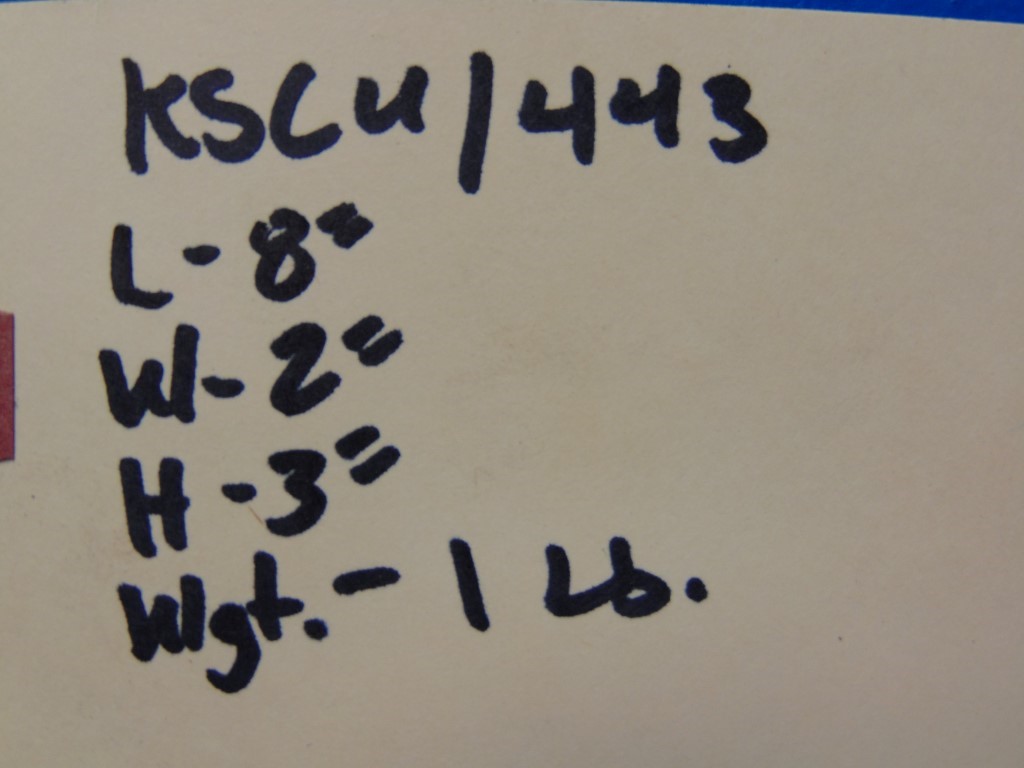 KSCU/443
L-8"
W-2"
H-3"
Wgt.- 1 Lb.